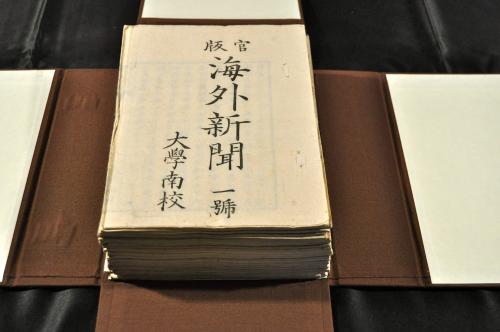 官版
海外新聞 一號
大學南校